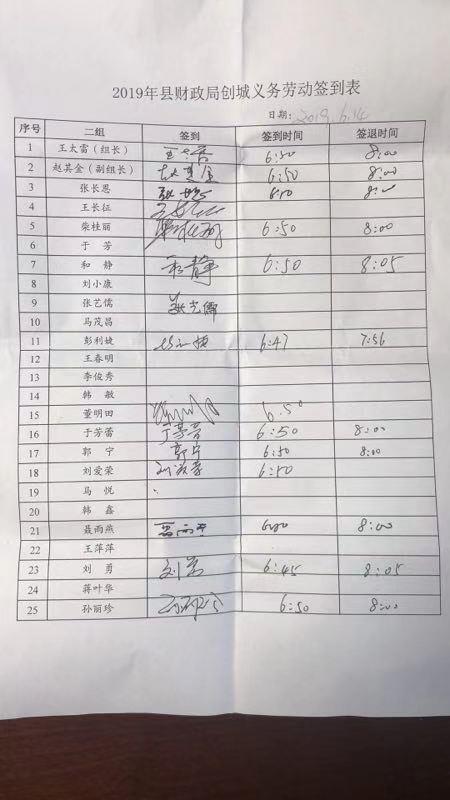 2019年县财政局创城义务劳动签到表
日期: 2019.6.14
序号 二组 签到 签到时间 签退时间
1 王太雷（组长） 6:50 8:00
2 赵其金（副组长） 赵其金 6:50 8:00
3 张长恩 张长恩 6:50 8:00
4 王长征
5 柴桂丽 柴桂丽 6:50 8:00
6 于 芳
7 和 静 和静 6:50 8:05
8 刘小康
9 张艺儒 张艺儒
10 马茂昌
11 彭利婕 6:47 7:56
12 王春明
13 李俊秀
14 韩 敏
15 董明田 6:50
16 于芳蕾 于芳蕾 6:50 8:00
17 郭 宁 郭宁 6:50 8:00
18 刘爱荣 刘爱荣 6:50
19 马 悦
20 韩 鑫
21 聂雨燕 6:50 8:00
22 王萍萍
23 刘 勇 刘勇 6:45 8:05
24 蒋叶华
25 孙丽珍 6:50 8:00